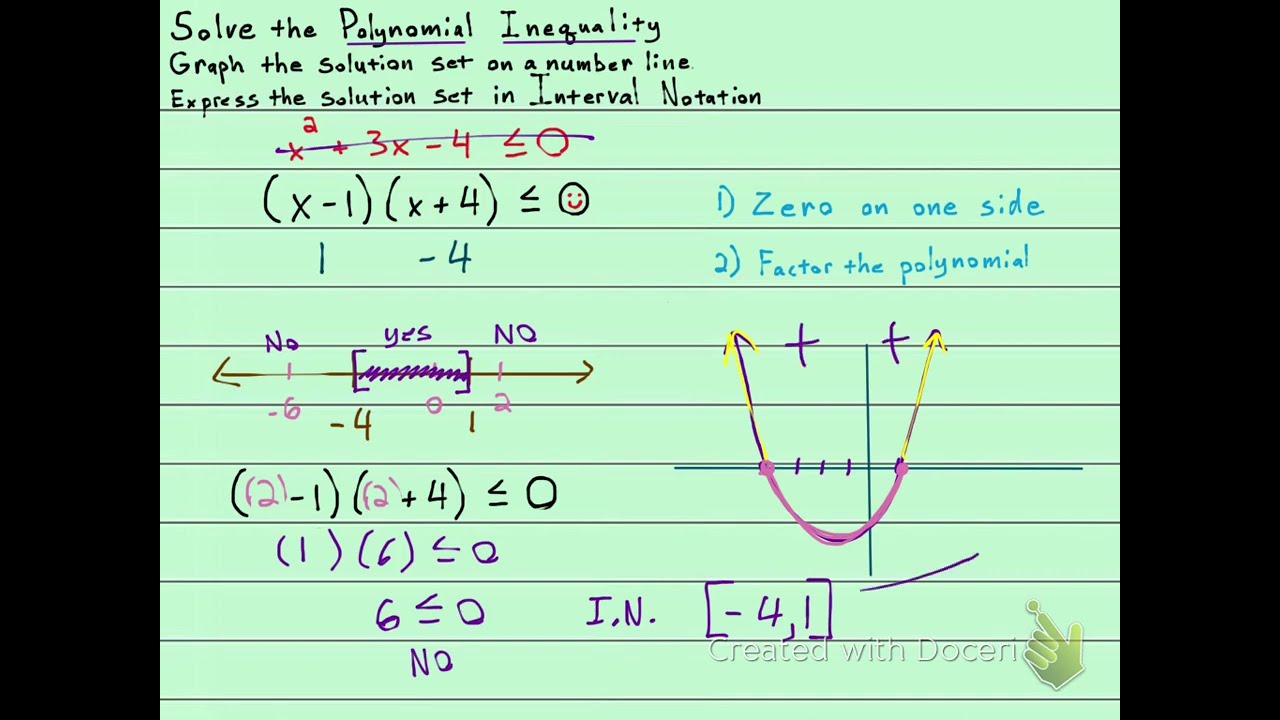 Solve the Polynomial Inequality
Graph the solution set on a number line.
Express the solution set in Interval Notation
x² + 3x - 4 ≤ 0
(x - 1)(x + 4) ≤ ☺
1) Zero on one side
1 -4
2) Factor the polynomial
No yes NO
+ +
[ ]
-6 0 2
-4 1
((2) - 1)((2) + 4) ≤ 0
(1)(6) ≤ 0
6 ≤ 0
I.N. [-4, 1]
Created with Doceri
NO